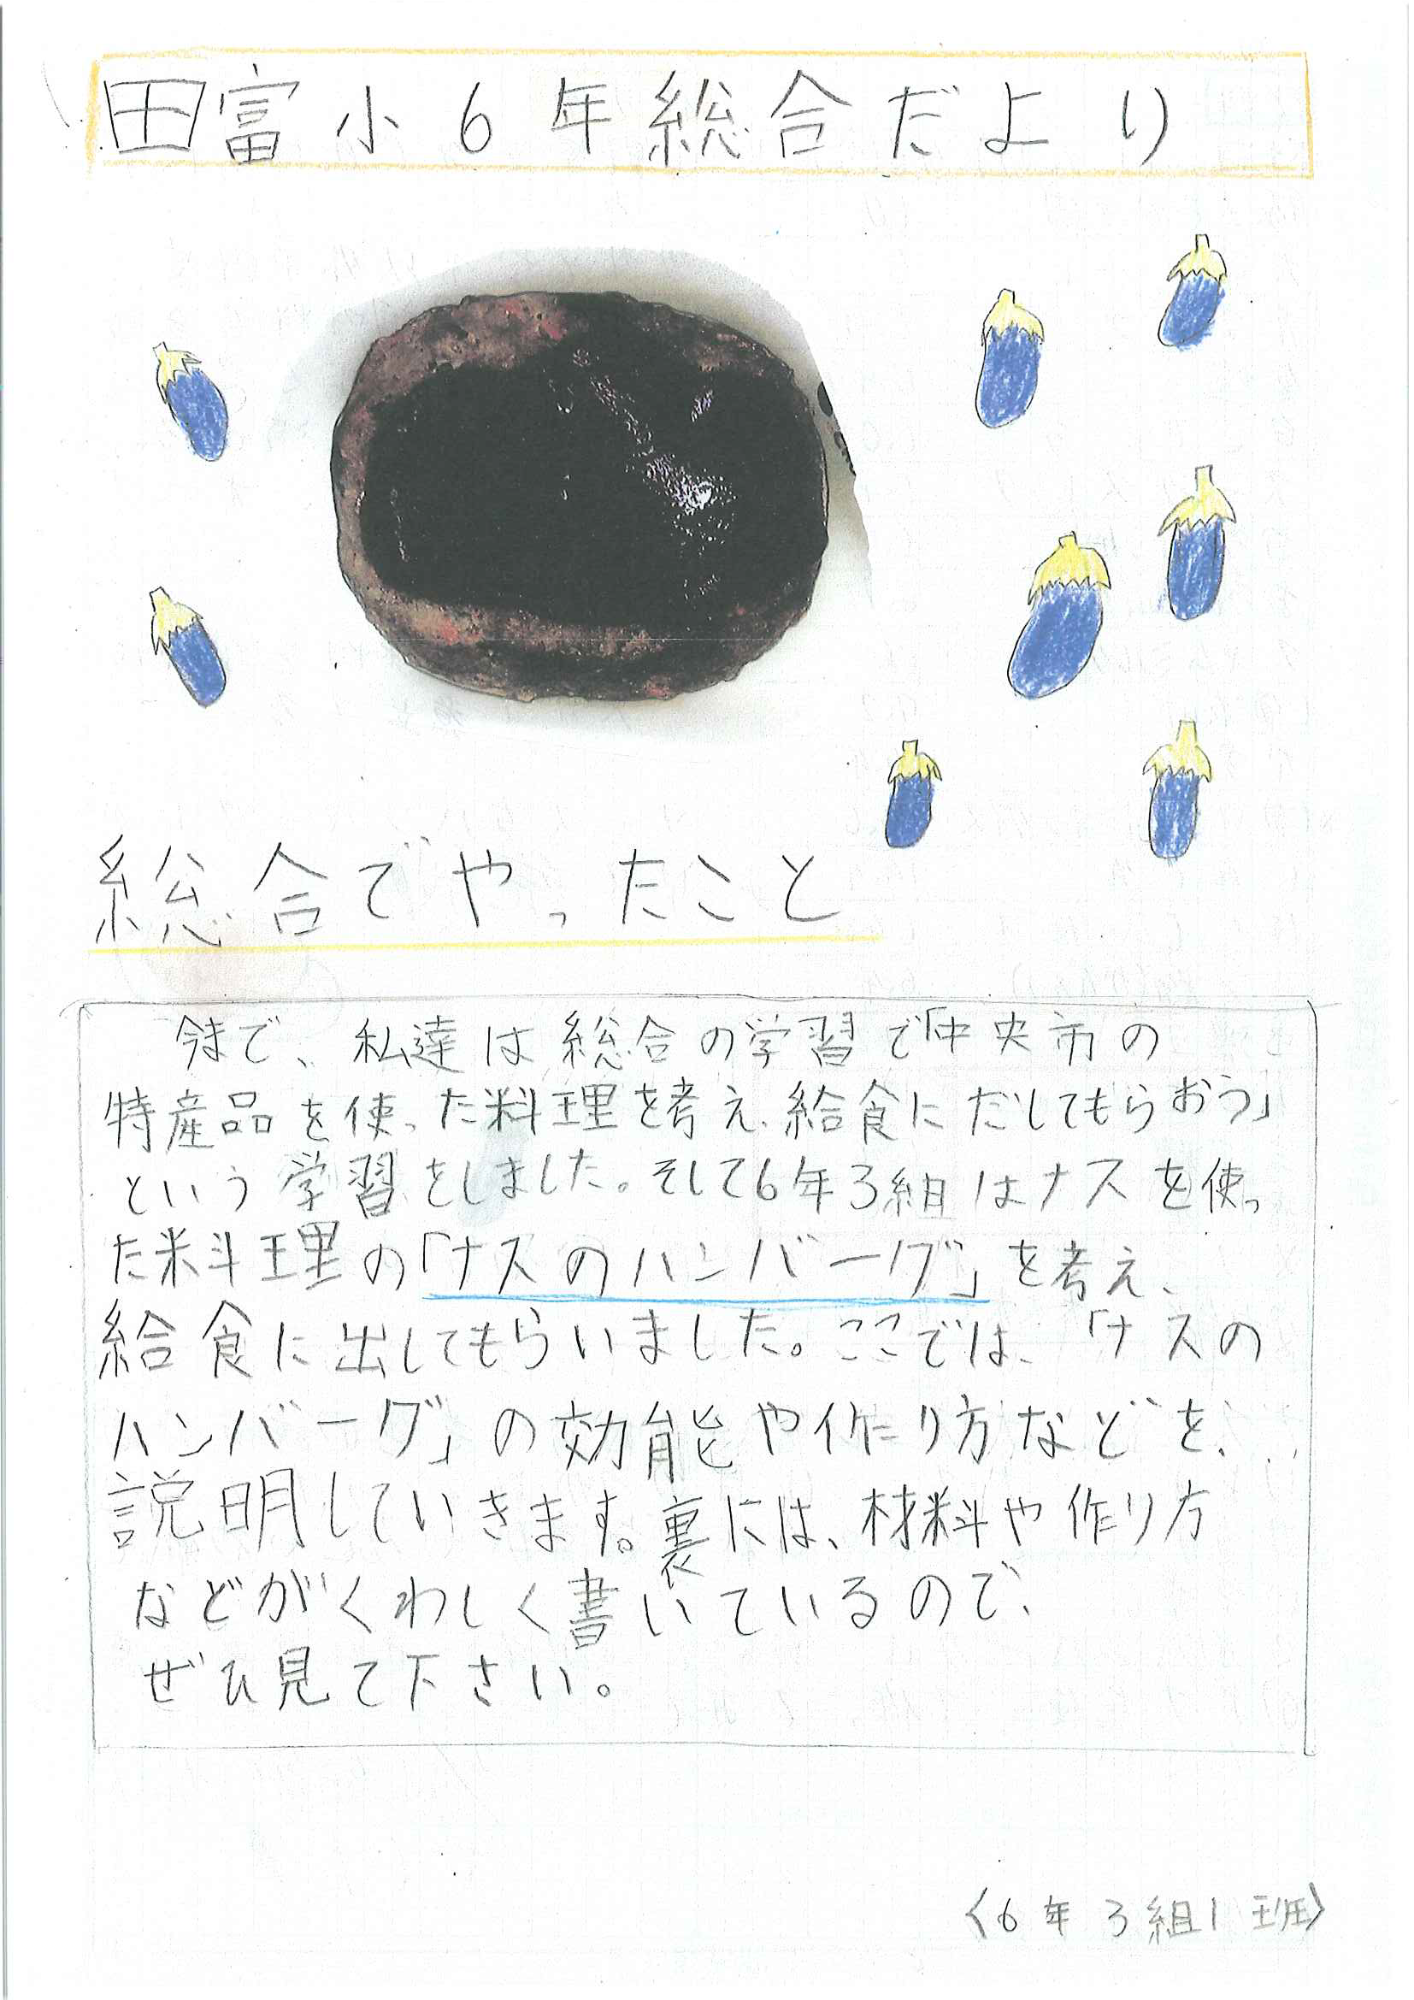 田富小6年総合だより
総合でやったこと
今まで、私達は総合の学習で「中央市の
特産品を使った料理を考え、給食にだしてもらおう」
という学習をしました。そして6年3組はナスを使っ
た料理の「ナスのハンバーグ」を考え、
給食に出してもらいました。ここでは、「ナスの
ハンバーグ」の効能や作り方などを、
説明していきます。裏には、材料や作り方
などがくわしく書いているので、
ぜひ見て下さい。
〈6年3組1班〉